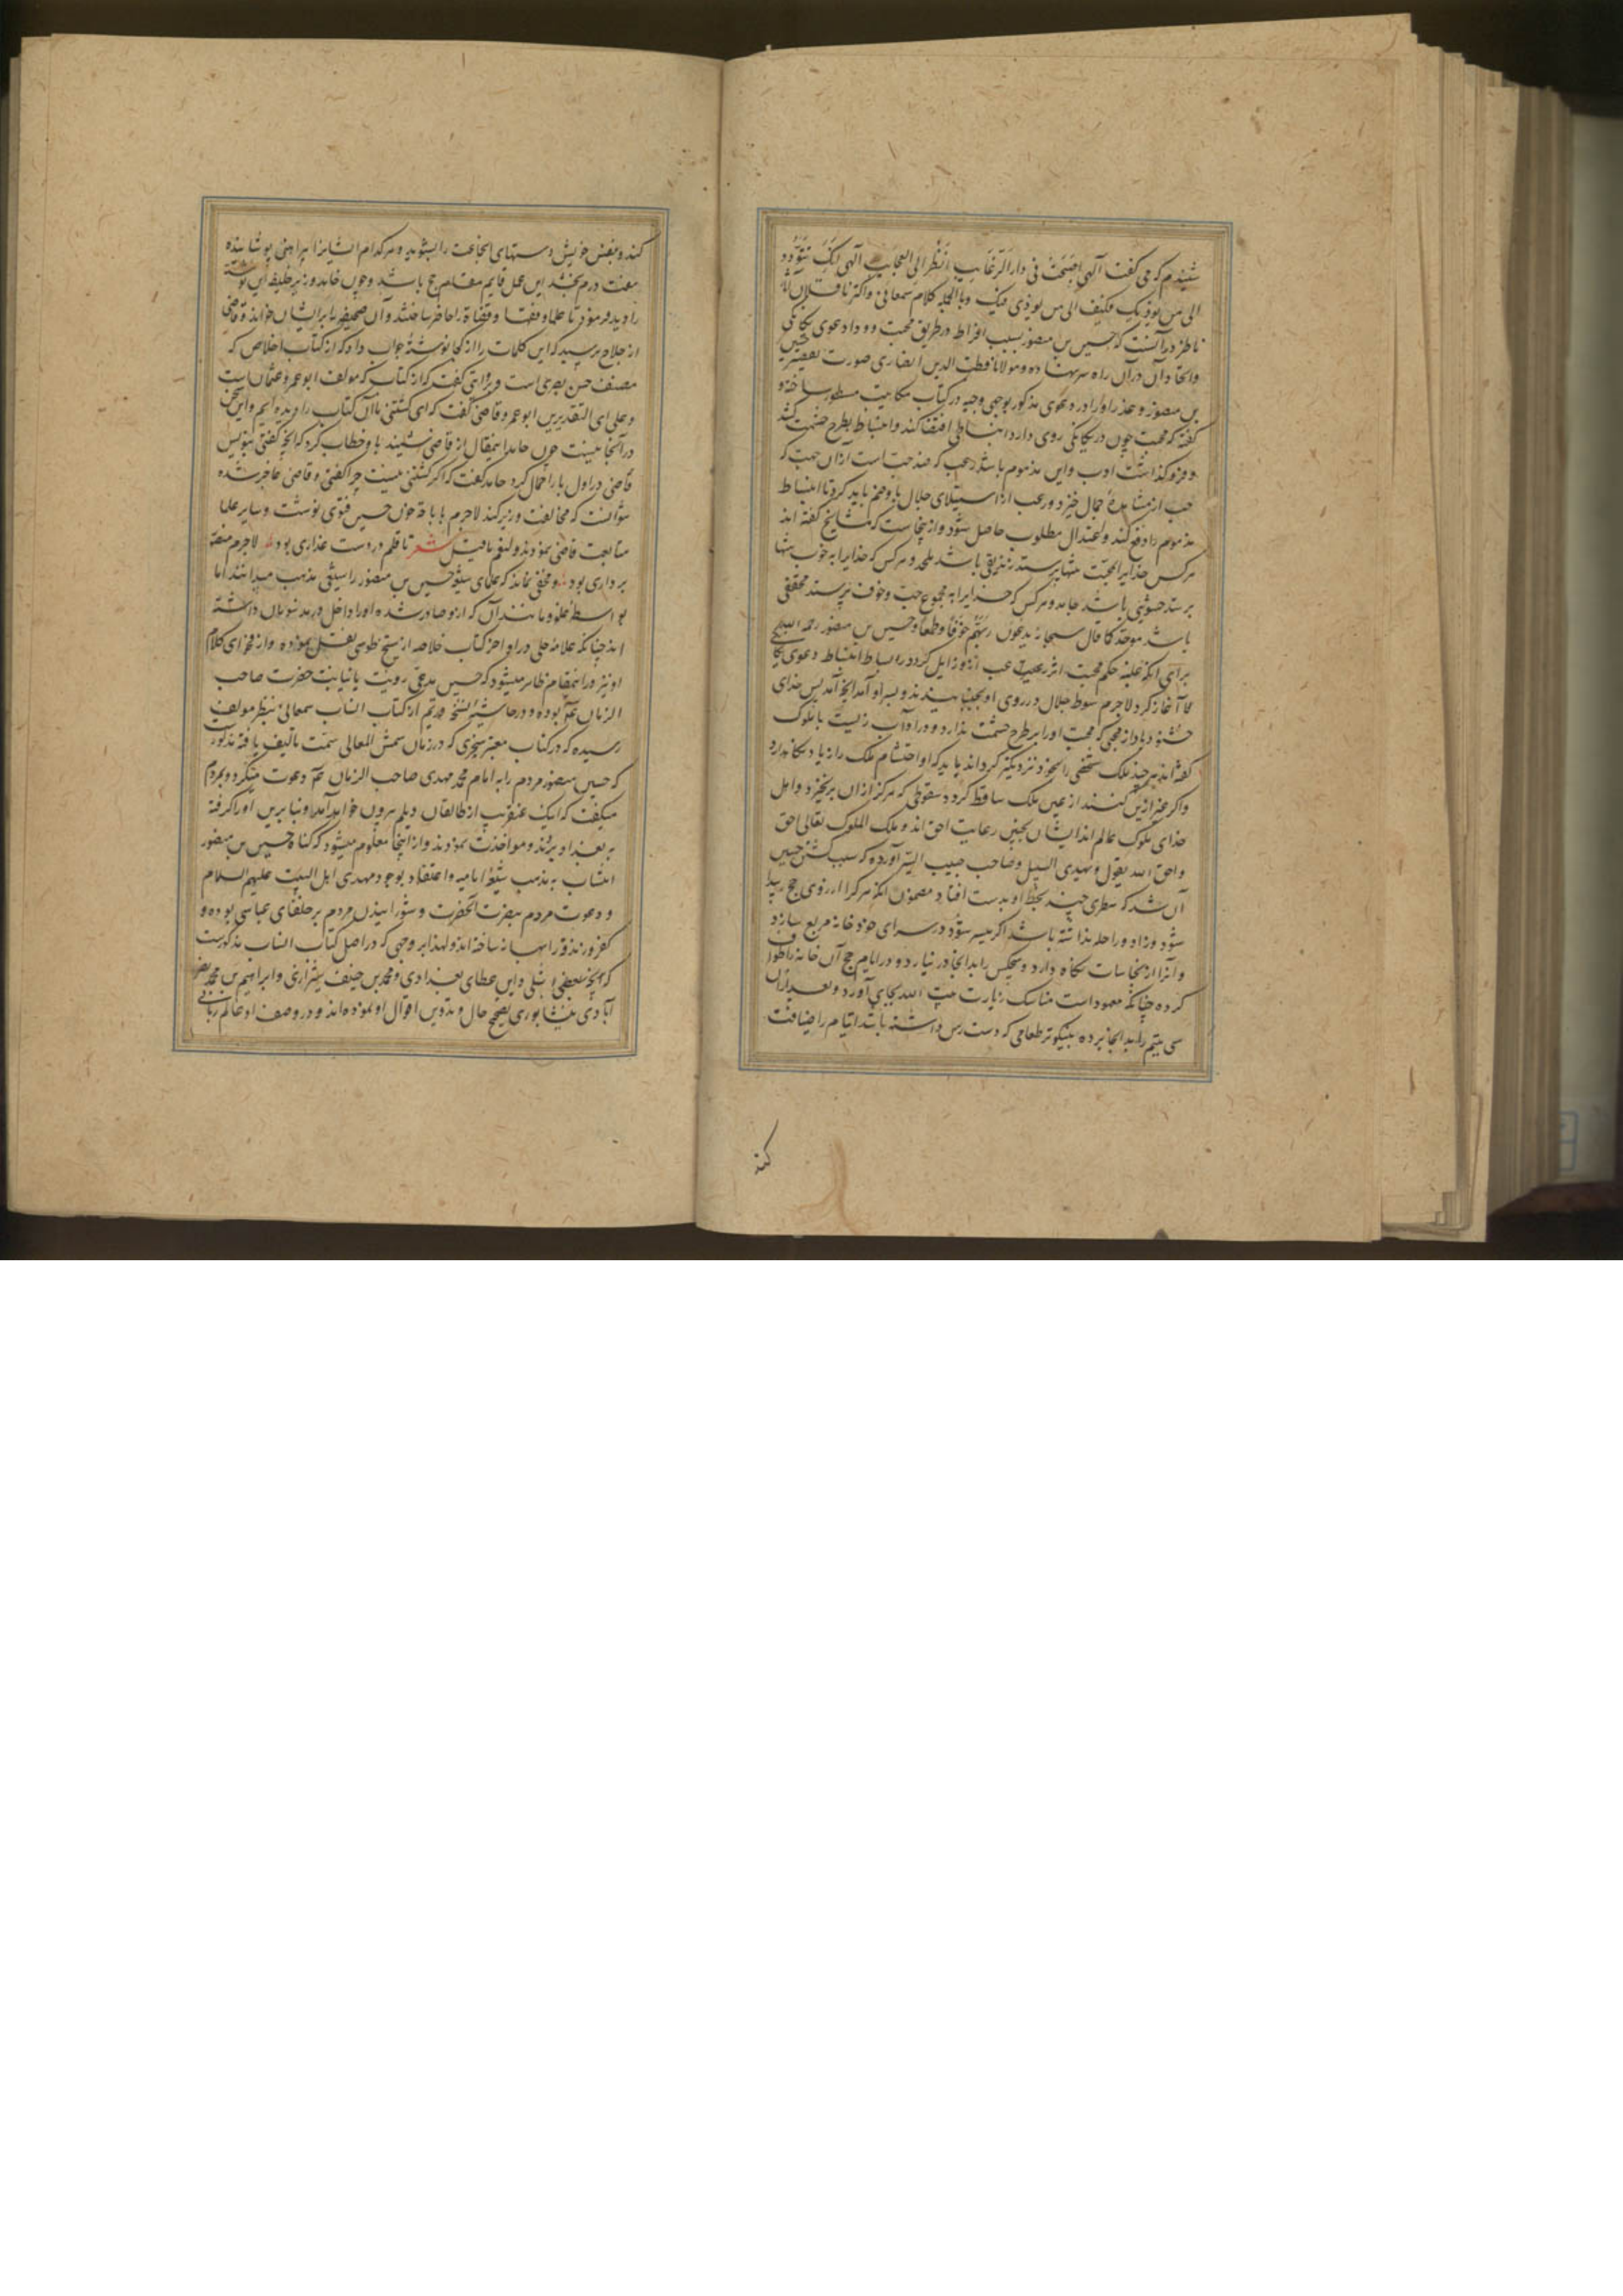 شنیدم که می گفت آلهی اصبحت فی دار الرغایب انظر الی العجایب آلهی انک تتودد
الی من یوذیک فکیف الی من یوذی فیک وبالجمله کلام سمعانی واکثر ناقلان آثار
ناظر در آنست که حسین بن منصور بسبب افراط در طریق محبت و وداد دعوی یکانکی
واتحاد وآن در آن راه سر نهاده ومولانا قطب الدین انصاری صورت تقصیر حسین
بن منصور وعذر او را در دعوی مذکور بوجهی وجیه در کتاب مکاتیب مسطور ساخته و
گفته که محبت چون در یکانکی روی دارد انبساطی اقتضا کند وانبساط بطرح حشمت کشد
وفروگذاشت ادب واین مذموم باشد
حب از مشاهده جمال خیزد ورعب از استیلای جلال با وضم باید کرد تا انبساط
مذموم را دفع کند واعتدال مطلوب حاصل شود وازینجاست که مشایخ گفته اند
هر کس خدایرا بمحبت تنها پرستد زندیقی باشد ملحد وهر کس که خدایرا به خوف تنها
پرستد حشوئی باشد جامد وهر کس که خدایرا به مجموع حب وخوف پرستد محققی
باشد موحد کما قال سبحانه یدعون ربهم خوفا وطمعا وحسین بن منصور رحمه الله
برای آنکه غلبه حکم محبت اثر هیبت از وزایل کرد در بساط انبساط دعوی
آغاز کرد لاجرم سوط جلال در روی او بجنبانیدند وبسر او آمد آنچه آمد پس خدای
خشنود باد از محبی که محبت او را بر طرح حشمت ندارد ودر آداب زیست با ملوک
گفته اند هر چند ملک شخصی را بخود نزدیکتر کرداند باید که او احتشام ملک را زیاده نکاه دارد
واکر غیر ازین کنند از عین ملک ساقط گردد سقوطی که هرکز از آن برنخیزد واهل
خدای ملوک عالم اند ایشان بچنین رعایت احق اند وملک الملوک تعالی احق
واحق الله یقول ویهدی السبیل وصاحب حبیب السیر آورده که سبب کشتن حسین
آن شد که سطری چند بخط او بدست افتاد مضمون آنکه هر کرا آرزوی حج پیدا
شود وزاد وراحله نداشته باشد اگر میسر شود در سرای خود خانه مربع سازد
وآنرا از نجاسات نکاه دارد وهیچکس را بدانجا در نیارد ودر ایام حج آن خانه را طواف
کرده چنانکه معهود است مناسک زیارت بیت الله بجای آورد وبعد از آن
سی یتیم را بدانجا برده نیکوتر طعامی که دست رس داشته باشد ایتام را ضیافت
کند
کند وبنفس خویش دستهای آنجماعت را بشوید وهر کدام ایشانرا پیراهنی پوشانیده
هفت درم بخشد این عمل قایم مقام حج باشد وچون حامد وزیر خلیفه این نوشته
را دید فرمود تا علما وفقها وقضاة را حاضر ساختند وآن صحیفه را بر ایشان خواند وقاضی
از حلاج پرسید که این کلمات را از کجا نوشته جواب داد که از کتاب اخلاص که
مصنف حسن بصری است وبروایتی گفت که از کتابی که مولف ابو عمرو عثمان است
وعلی ای التقدیرین ابو عمرو قاضی گفت که ای کشتنی ما آن کتاب را دیده ایم واین سخن
در آنجا نیست چون حامد اینمقال از قاضی شنید با وخطاب کرد که آنچه گفتی بنویس
قاضی در اول بار اهمال کرد حامد گفت که اگر کشتنی نیست چرا گفتی وقاضی عاجز شده
نتوانست که مخالفت وزیر کند لاجرم باباحه خون حسین فتوی نوشت وسایر علما
متابعت قاضی نمودند ولنعم ما قیل شعر تا قلم در دست غداری بود لاجرم منصور
بر داری بود ومخفی نماند که علمای شیعه حسین بن منصور را شیعی مذهب میدانند اما
بواسطه غلو ومانند آن که از و صادر شده او را داخل در مذمومان داشته
اند چنانکه علامه حلی در اواخر کتاب خلاصه از شیخ طوسی نقل نموده واز فحوای کلام
او نیز در اینمقام ظاهر میشود که حسین مدعی رویت یا نیابت حضرت صاحب
الزمان عم بوده ودر حاشیه نسخه قدیم از کتاب انساب سمعانی بنظر مولف
رسیده که در کتاب معتبر سجزی که در زمان شمس المعالی سمت تالیف یافته مذکور
که حسین منصور مردم را به امام محمد مهدی صاحب الزمان عم دعوت میکرد وبمردم
میگفت که اینک عنقریب از طالقان دیلم بیرون خواهد آمد وبنا برین او را گرفته
به بغداد بردند ومواخذت نمودند واز اینجا معلوم میشود که گناه حسین بن منصور
انتساب به مذهب شیعه امامیه واعتقاد بوجود مهدی اهل البیت علیهم السلام
ودعوت مردم بنصرت آنحضرت وشورانیدن مردم بر خلفای عباسی بوده و
کفر وزندقه را بهانه ساخته اند ولهذا بر وجهی که در اصل کتاب انساب مذکورست
که شبلی وابن عطای بغدادی ومحمد بن خفیف شیرازی وابراهیم بن محمد نصر
آبادی نیشابوری تصحیح حال وتدوین اقوال او نموده اند ودر وصف او عالم ربانی